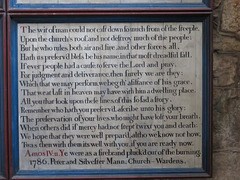 The wit of man could not cast down so much from off the steeple
Upon the church's roof and not destroy much of the people:
But he who rules both air and fire, and other forces all,
Hath us preserv'd bless'd be his name, in that most dreadful fall.
If ever people had a cause to serve the Lord and pray,
For judgment and deliverance, then surely we are they:
Which that we may perform, we beg th' assistance of his grace,
That we at last in heaven may have with him a dwelling place.
All you that look upon these lines of this so sad a story,
Remember who hath you preserv'd, ascribe unto his glory
The preservation of your lives who might have lost your breath
When others did if mercy had not stept 'twixt you and death.
We hope that they were well prepar'd, altho' we know not how,
'Twas then with them it's well with you if you are ready now.
Amos IV.11 Ye were as a firebrand pluck'd out of the burning.
1786. Peter and Silvester Mann, Church-Wardens.